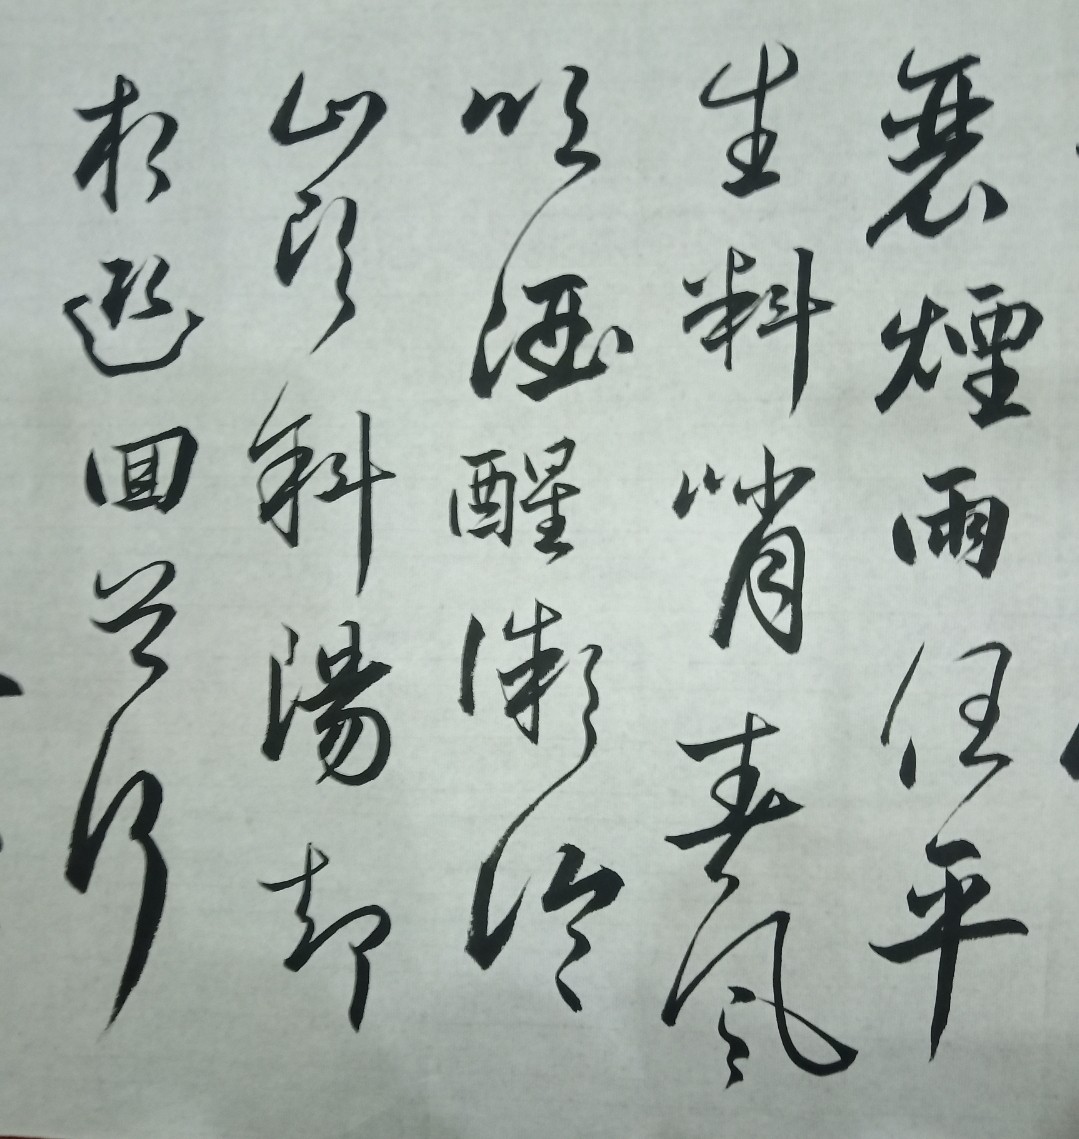 蓑煙雨任平
生料峭春風
吹酒醒微冷
山頭斜陽却
相迎回首向